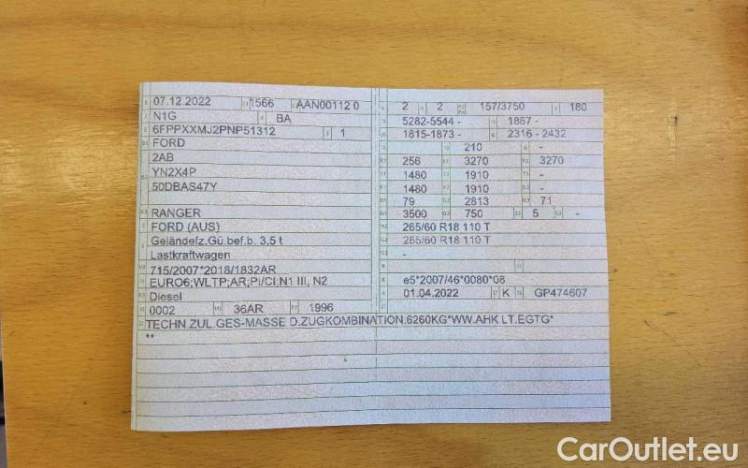 07.12.2022 1566 AAN00112 0
N1G BA
6FPPXXMJ2PNP51312 1
FORD
2AB
YN2X4P
5ODBAS47Y
RANGER
FORD (AUS)
Geländefz.Gü.bef.b. 3,5 t
Lastkraftwagen
715/2007*2018/1832AR
EURO6;WLTP;AR;PI/CI:N1 III, N2
Diesel
0002 36AR 1996
TECHN.ZUL.GES-MASSE D.ZUGKOMBINATION.6260KG*WW.AHK LT.EGTG*
**
2 2 157/3750 180
5282-5544 - 1867 -
1815-1873 - 2316 - 2432
- 210 -
256 3270 3270
1480 1910 -
1480 1910 -
79 2813 71
3500 750 5 -
265/60 R18 110 T
265/60 R18 110 T
-
e5*2007/46*0080*08
01.04.2022 K GP474607
CarOutlet.eu